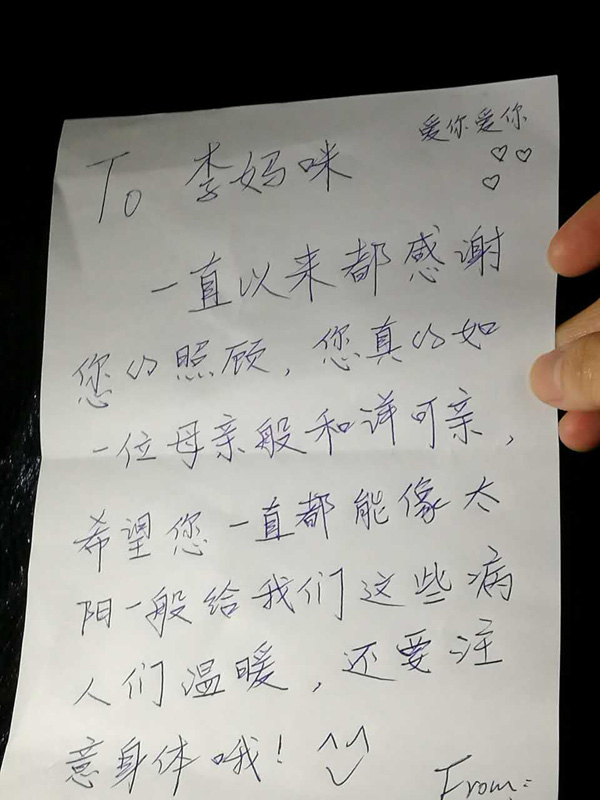 爱你爱你
To 李妈咪
一直以来都感谢
您的照顾，您真的如
一位母亲般和洋可亲，
希望您一直都能像太
阳一般给我们这些病
人们温暖，还要注
意身体哦！
From: